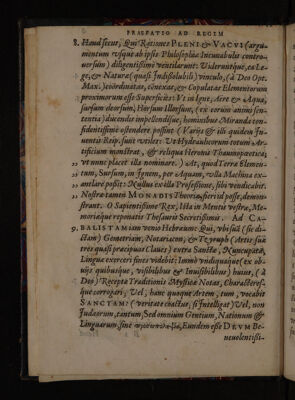 PRÆFATIO AD REGEM
8. Haud secus, Qui Rationes PLENI & VACVI (argu-
mentum vsque ab ipsis Philosophiæ Incunabulis contro-
uersum) diligentissimè ventilarunt: Viderúntque, ea Le-
ge, & Naturæ (quasi Indissolubili) vinculo, (à Deo Opt.
Max.) coördinatas, cōnexas, & Copulatas Elementorum
proximorum esse Superficies: Vt in Igne, Aere & Aqua,
sursum deorsùm, Horsum Illorsum, (ex eorum animi sen-
tentia) ducendis impellendisue, hominibus Miranda con-
fidentissimè ostendere possint: (Varijs & illi quidem In-
uentis Reip. sunt vtiles: Vt Hydraulicorum totum Ar-
tificium monstrat, & reliqua Heronis Thaumaturgica;
„ vt nunc placet illa nominare.) At, quod Terræ Elemen-
„ tum, Sursum, in Ignem, per Aquam, vlla Machina ex-
„ antlare possit: Nulla ex illis Professione, sibi vendicabit.
„ Nostræ tamen MONADIS Theorijs fieri id posse, demon-
„ strant. O Sapientissime Rex, Ista in Mentis vestræ, Me-
moriæque reponatis Thesauris Secretissimis. Ad CA-
BALISTAM iam venio Hebræum: Qui, vbi suā (sic di-
ctam) Gematriam, Notariacon, & Tzyruph (Artis suæ
tres quasi præcipuas Claues) extra Sanctæ, Nuncupatæ,
Linguæ exerceri fines videbit: Immò vndiquaque (ex ob-
uijs quibusque, visibilibus & Inuisibilibus) huius, (à
Deo) Receptæ Traditionis Mysticæ Notas, Characteres-
que corrogari; Vel, hanc quoque Artem, tum, vocabit
SANCTAM: (veritate coactus, si Intelligat) Vel, non
Iudæorum, tantum, Sed omnium Gentium, Nationum &
Linguarum, sine Eundem esse DEVM Be-
neuolentissi-